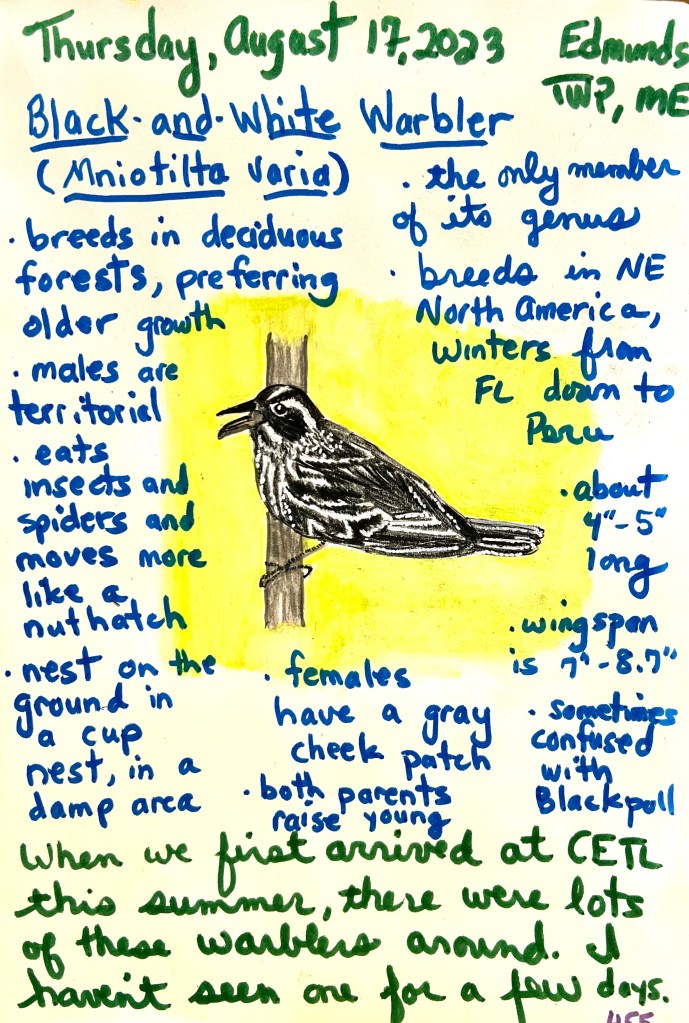 Thursday, August 17, 2023
Edmunds
TWP, ME
Black-and-White Warbler
(Mniotilta varia)
· breeds in deciduous
forests, preferring
older growth
· males are
territorial
· eats
insects and
spiders and
moves more
like a
nuthatch
· nest on the
ground in
a cup
nest, in a
damp area
· the only member
of its genus
· breeds in NE
North America,
winters from
FL down to
Peru
· about
4"-5"
long
· wingspan
is 7"-8.7"
· sometimes
confused
with
Blackpoll
· females
have a gray
cheek patch
· both parents
raise young
When we first arrived at CETL
this summer, there were lots
of these warblers around. I
haven't seen one for a few days.